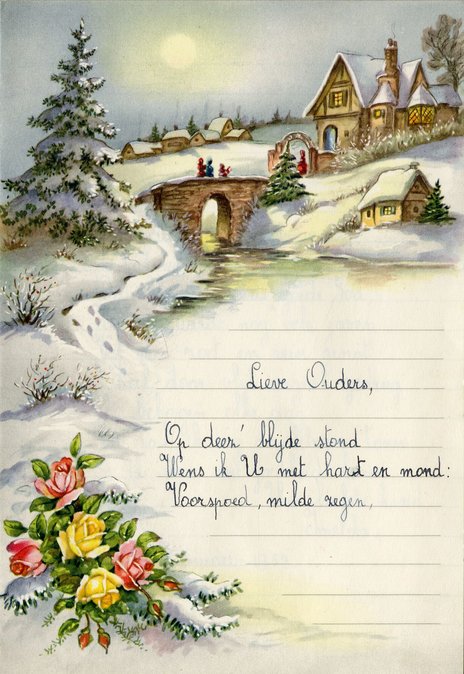 Lieve Ouders,
Op deez' blijde stond
Wens ik U met hart en mond:
Voorspoed, milde zegen,